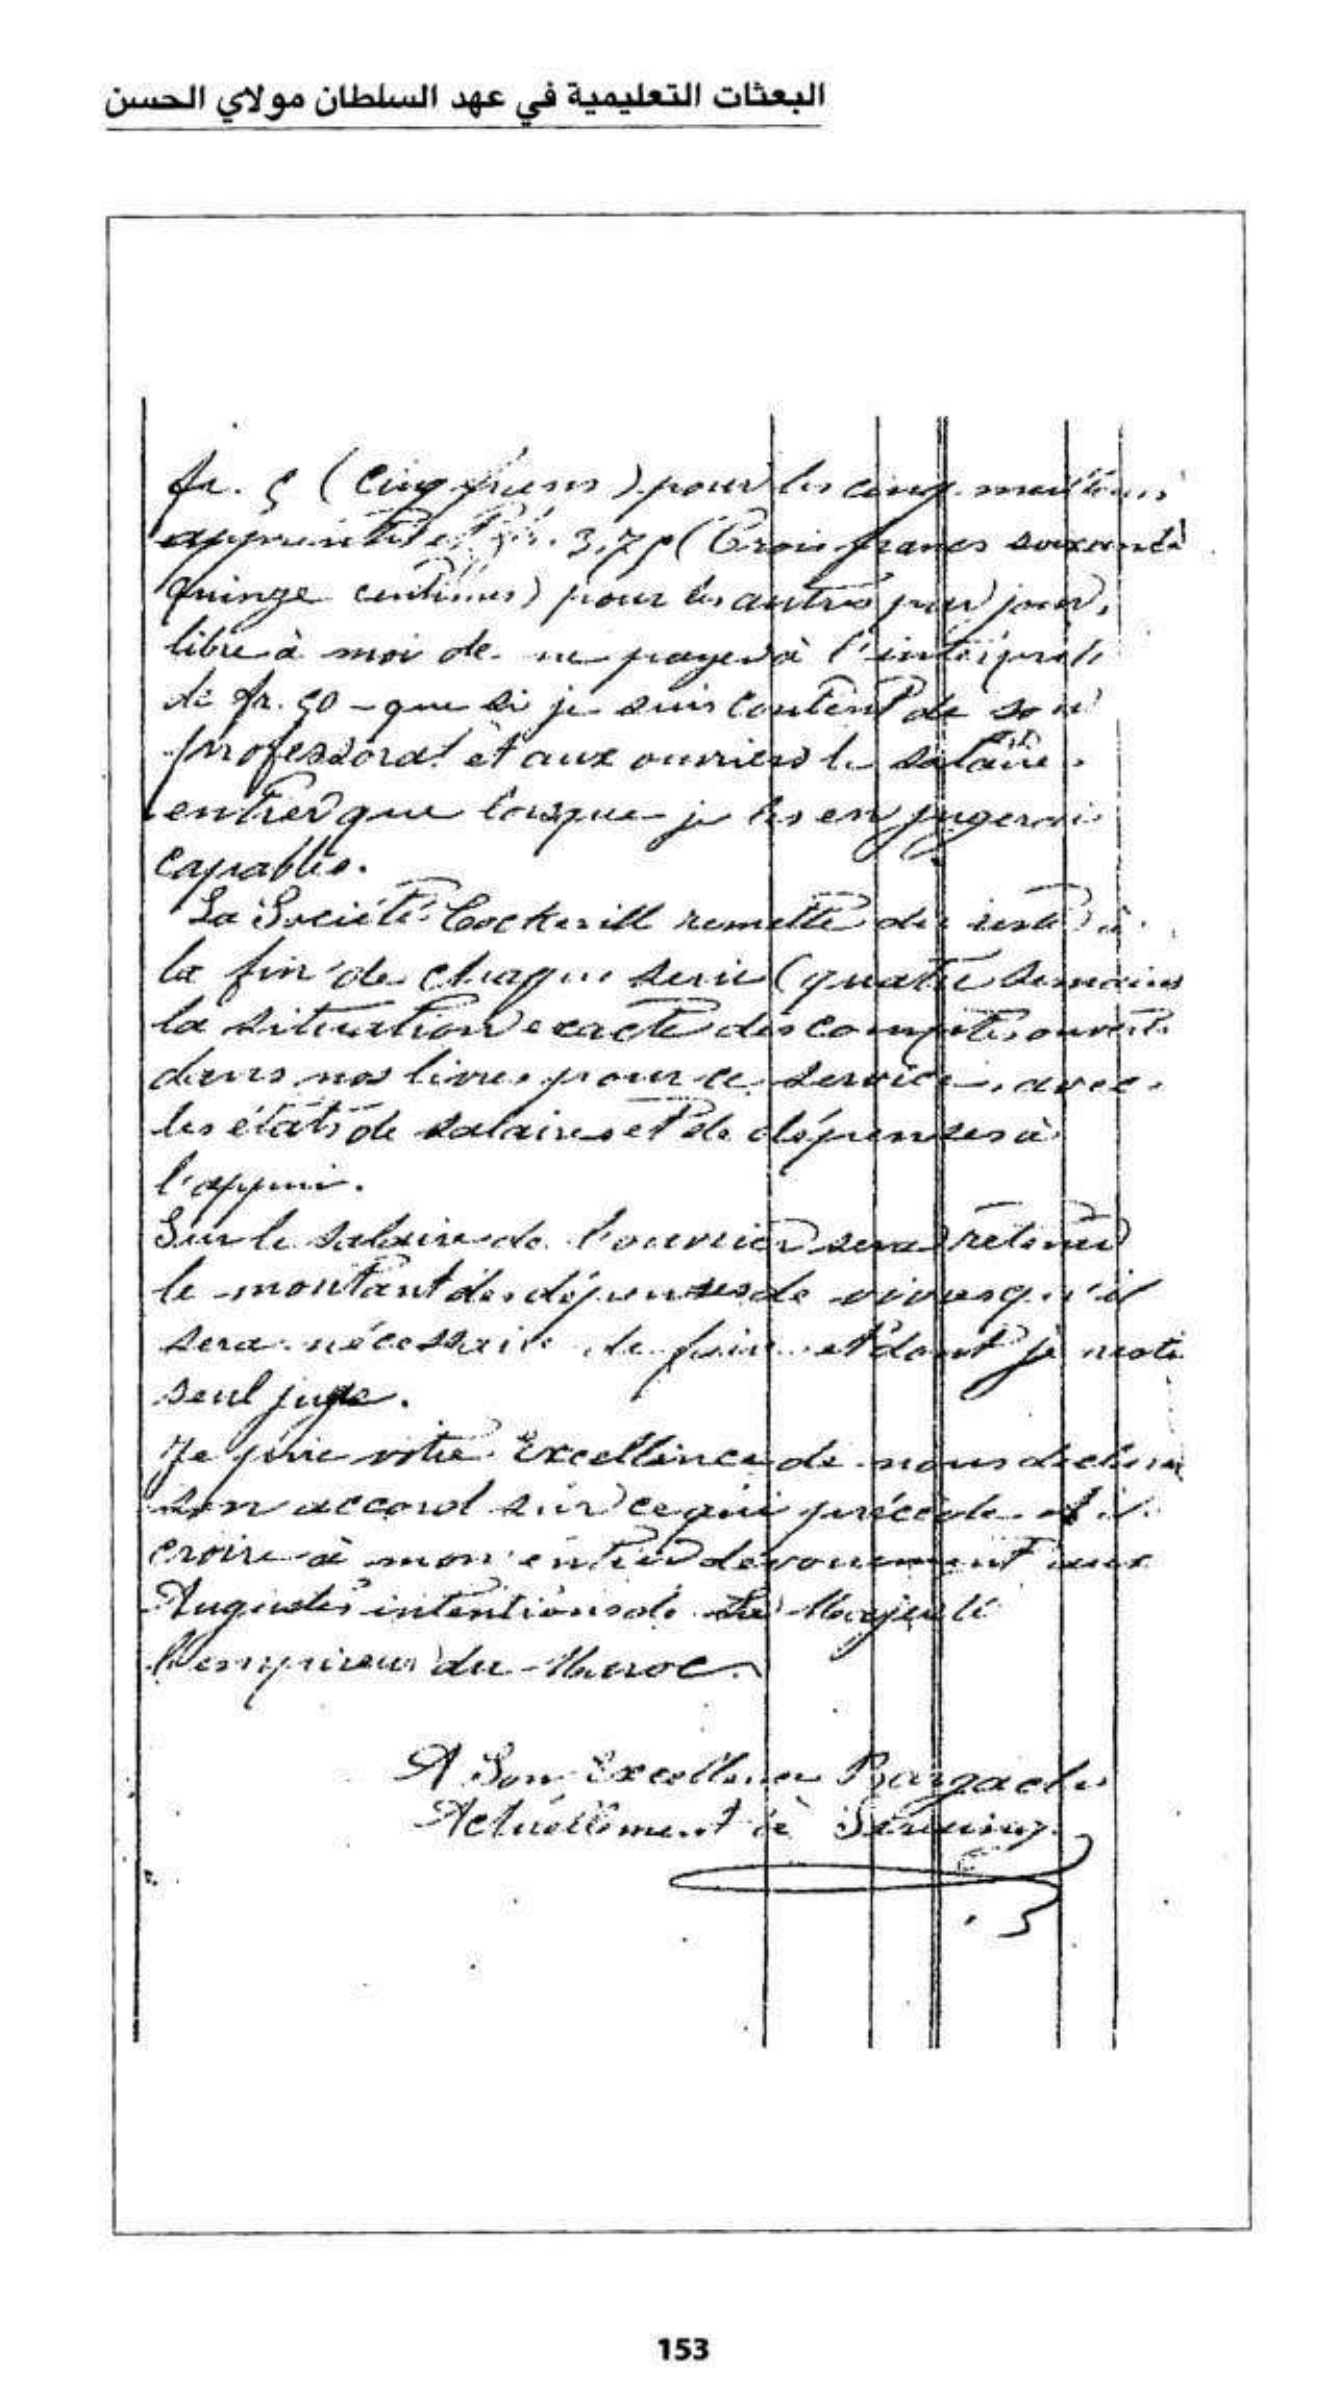 البعثات التعليمية في عهد السلطان مولاي الحسن
fr. 5 (Cinq francs) pour les cinq meilleurs
apprentis et fr. 3,75 (Trois francs soixante
quinze centimes) pour les autres par jour,
libre à moi de ne payer à l'interprète
de fr. 50 - que si je suis content de son
professorat et aux ouvriers le salaire
entier que lorsque je les en jugerai
capables.
La Société Cockerill remettra du reste à
la fin de chaque serie (quatre semaines
la situation exacte des comptes ouverts
dans nos livres pour ce service, avec
les états de salaires et de dépenses à
l'appui.
Sur le salaire de l'ouvrier sera retenu
le montant des dépenses de vivres qu'il
sera nécessaire de faire et dont je reste
seul juge.
Je prie votre Excellence de nous
son accord sur ce qui précède et
croire à mon entier devouement aux
Augustes intentions de Sa Majesté
l'empereur du Maroc.
A Son Excellence Bargache
Actuellement à Seraing.
153